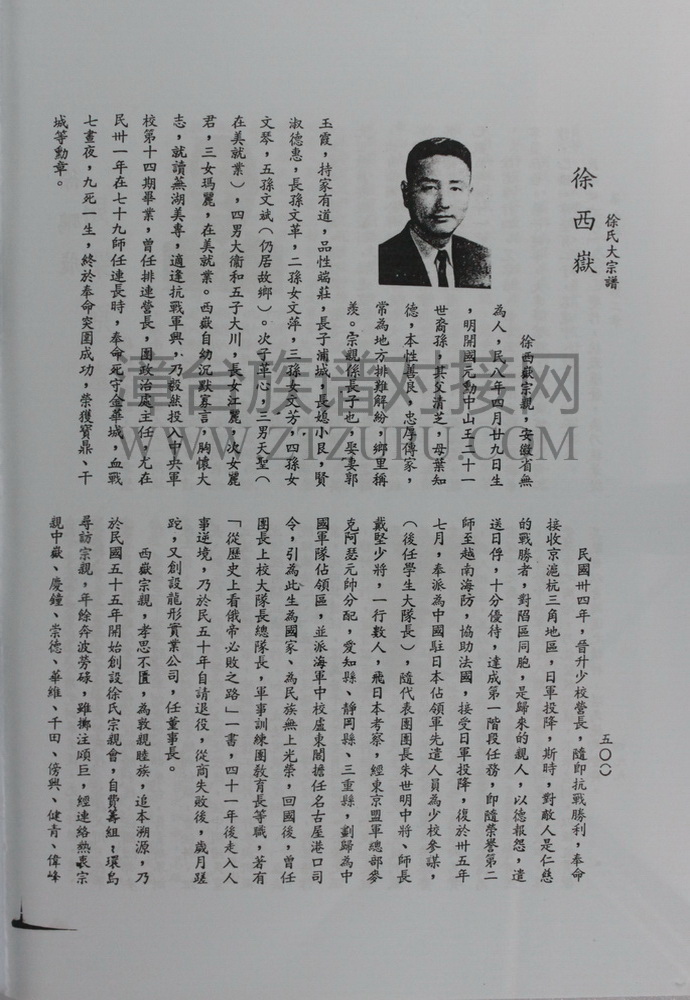 徐氏大宗譜
徐西嶽
徐西嶽宗親，安徽省無
為人，民八年四月廿九日生
，明開國元勳中山王二十一
世裔孫，其父清芝，母葉知
德，本性善良，忠厚傳家，
常為地方排難解紛，鄉里稱
羨。宗親係長子也，娶妻郭
玉霞，持家有道，品性端莊，長子浦城，長媳小艮，賢
淑德惠，長孫文革，二孫女文萍，三孫女文芳，四孫女
文琴，五孫文斌（仍居故鄉）。次子革心，三男天聖（
在美就業），四男大衛和五子大川，長女江麗，次女麗
君，三女瑪麗，在美就業。西嶽自幼沉默寡言，胸懷大
志，就讀蕪湖美專，適逢抗戰軍興，乃毅然投入中央軍
校第十四期畢業，曾任排連營長，團政治處主任，尤在
民卅一年在七十九師任連長時，奉命死守金華城，血戰
七晝夜，九死一生，終於奉命突圍成功，榮獲寶鼎、干
城等勳章。
五〇〇
民國卅四年，晉升少校營長，隨即抗戰勝利，奉命
接收京滬杭三角地區，日軍投降，斯時，對敵人是仁慈
的戰勝者，對陷區同胞，是歸來的親人，以德報怨，遣
送日俘，十分優待，達成第一階段任務，即隨榮譽第二
師至越南海防，協助法國，接受日軍投降，復於卅五年
七月，奉派為中國駐日本佔領軍先遣人員為少校參謀，
（後任學生大隊長），隨代表團團長朱世明中將、師長
戴堅少將，一行數人，飛日本考察，經東京盟軍總部麥
克阿瑟元帥分配，愛知縣、靜岡縣、三重縣，劃歸為中
國軍隊佔領區，並派海軍中校盧東閣擔任名古屋港口司
令，引為此生為國家、為民族無上光榮，回國後，曾任
團長上校大隊長總隊長，軍事訓練團教育長等職，若有
「從歷史上看俄帝必敗之路」一書，四十一年後走入人
事逆境，乃於民五十年自請退役，從商失敗後，歲月蹉
跎，又創設龍形實業公司，任董事長。
西嶽宗親，孝思不匱，為敦親睦族，追本溯源，乃
於民國五十五年開始創設徐氏宗親會，自費籌組，環島
尋訪宗親，年餘奔波勞碌，雖擲注頗巨，經連絡熱衷宗
親中嶽、慶鐘、崇德、華維、千田、傍興、健青、偉峰
章台族谱对接网
WWW.ZTZUPU.COM